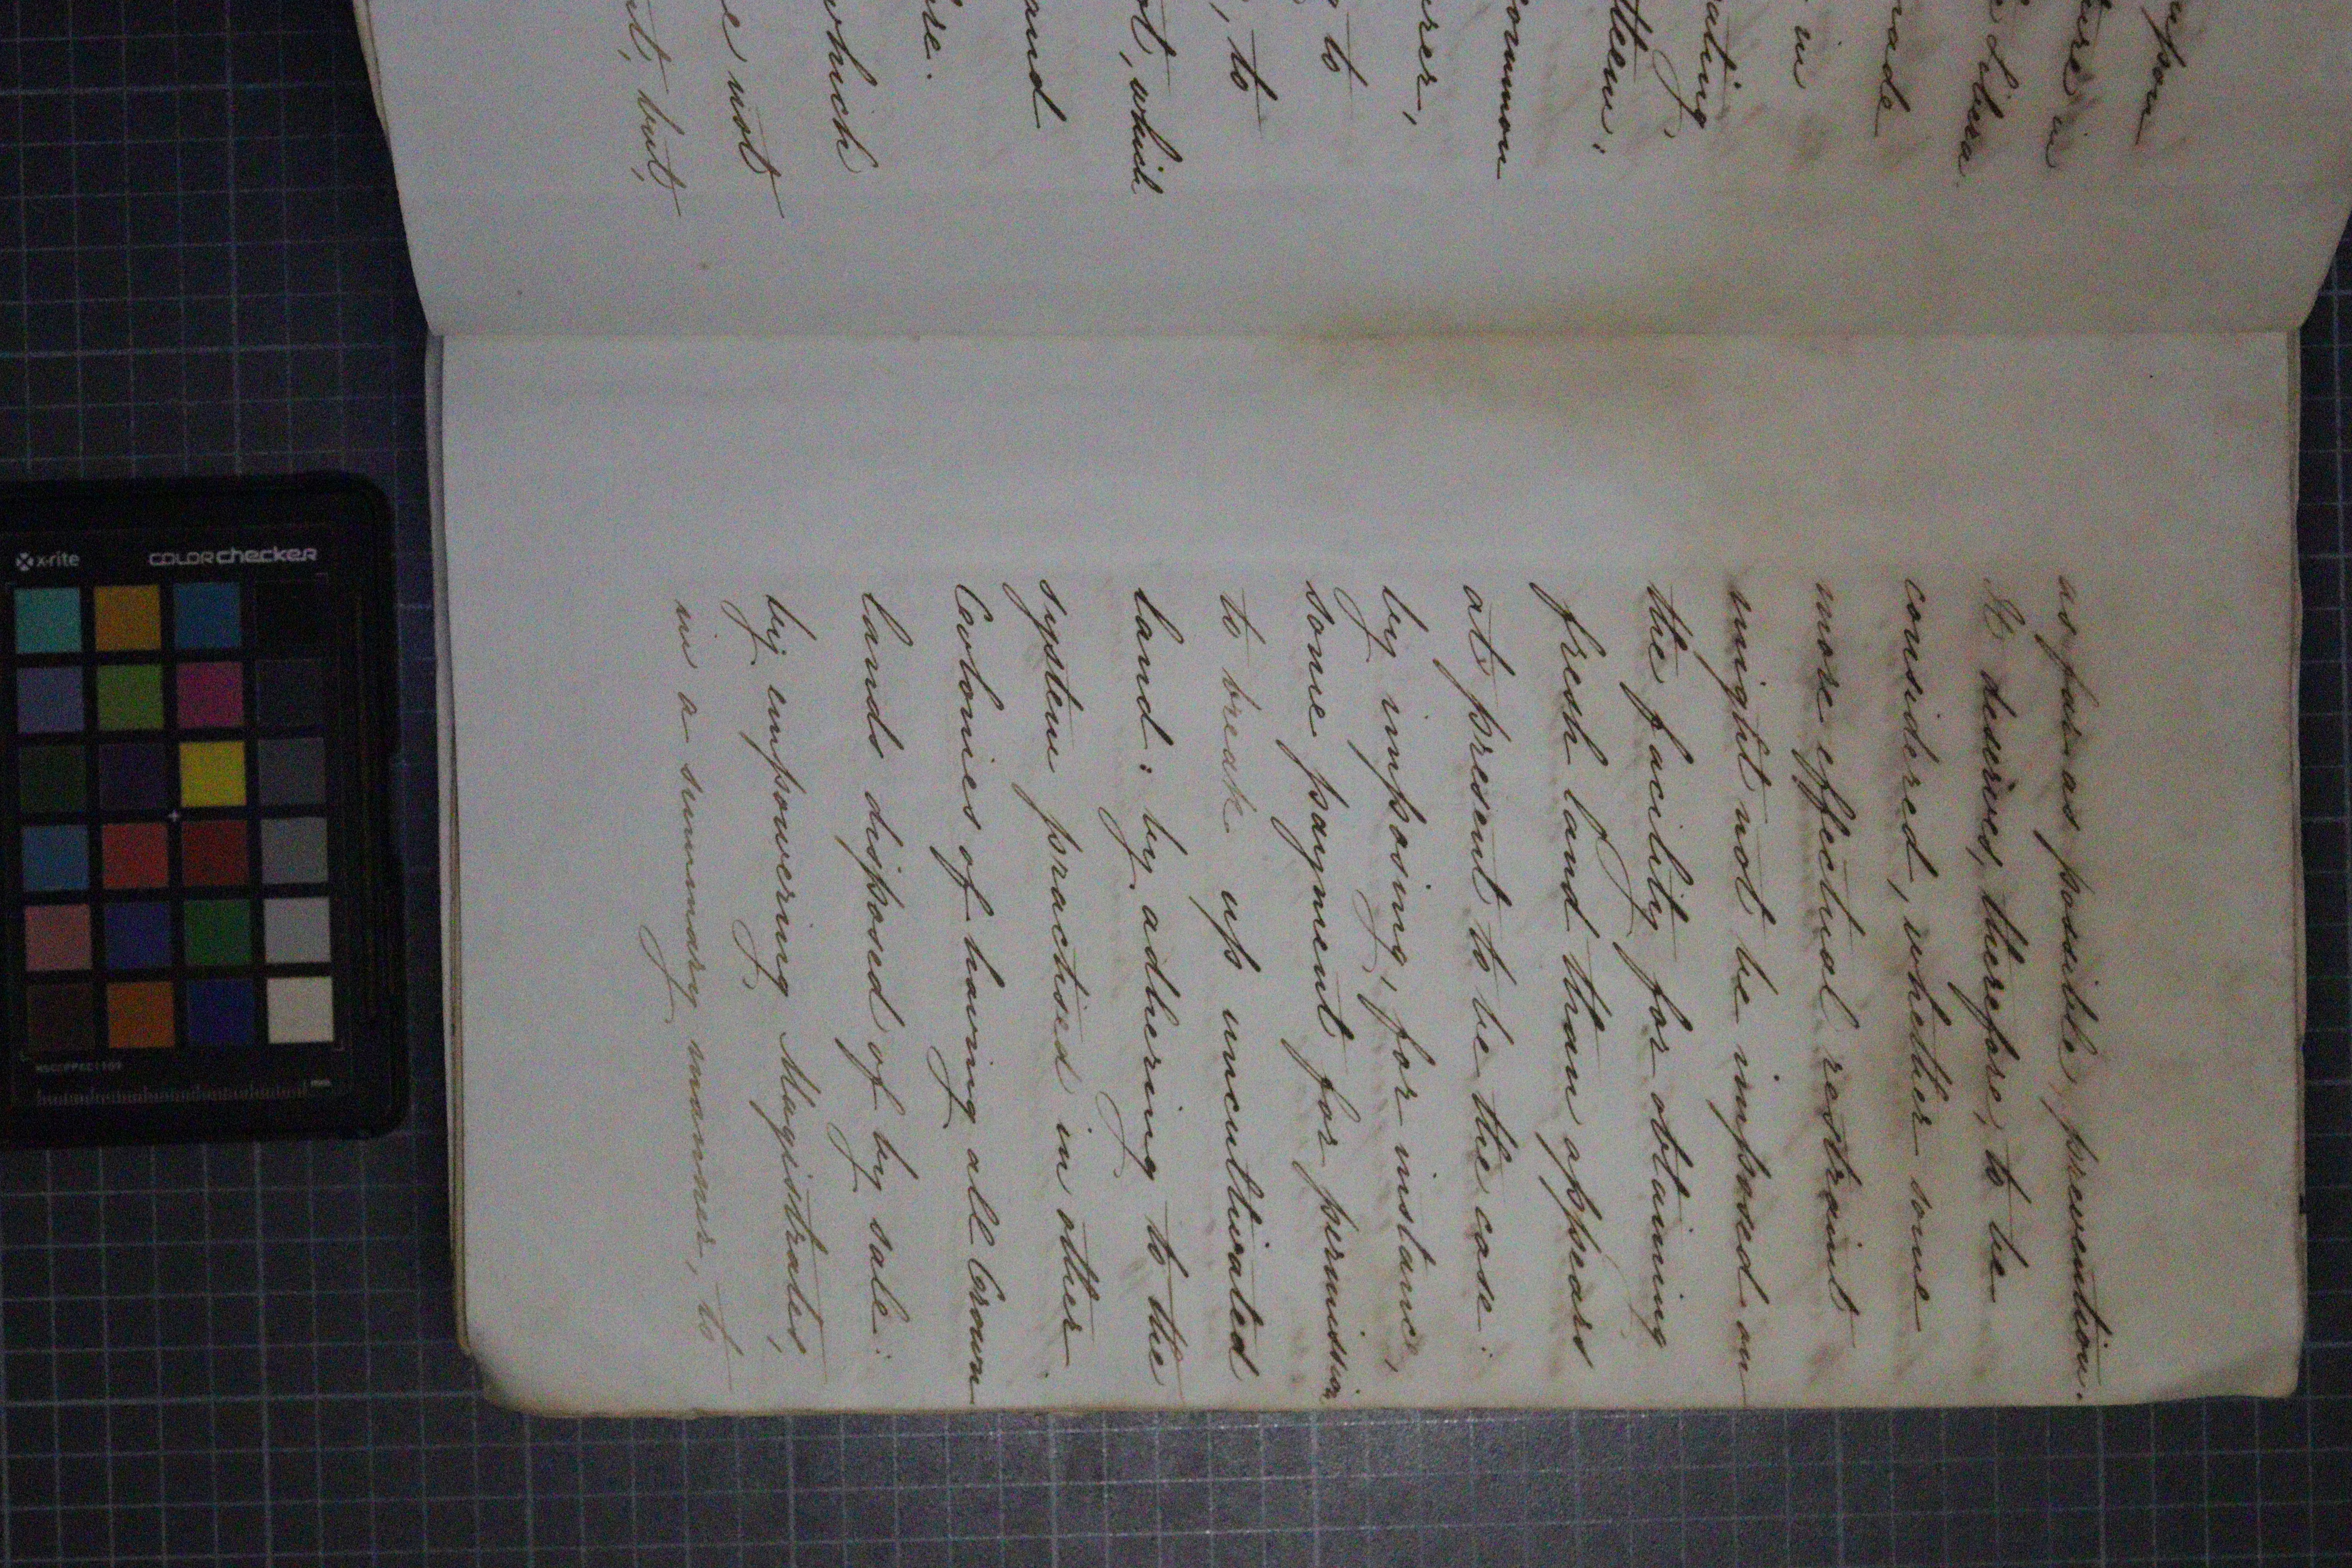 upson
ure in
e Libera
made
in
ating
them.
common
urer,
to
, to
ot, which
and
re.
which
e not
nt, but,
as far as possible, prevention.
It deserves, therefore, to be
considered, whether some
more effectual restraint
might not be imposed on
the facility for obtaining
fresh land than appears
at present to be the case:
by imposing, for instance,
some payment for permission
to break up uncultivated
land: by adhering to the
system practised in other
Colonies of having all Crown
lands disposed of by sale:
by empowering Magistrates,
in a summary manner, to
x-rite
COLORchecker
mm